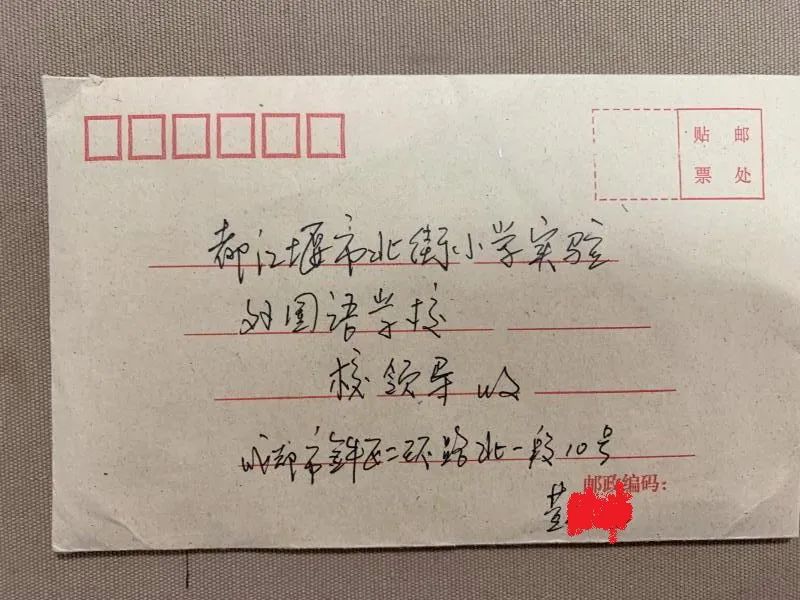 贴 邮
票 处
都江堰市北街小学实验
外国语学校
校领导 收
成都市金牛区二环路北一段10号
邮政编码: